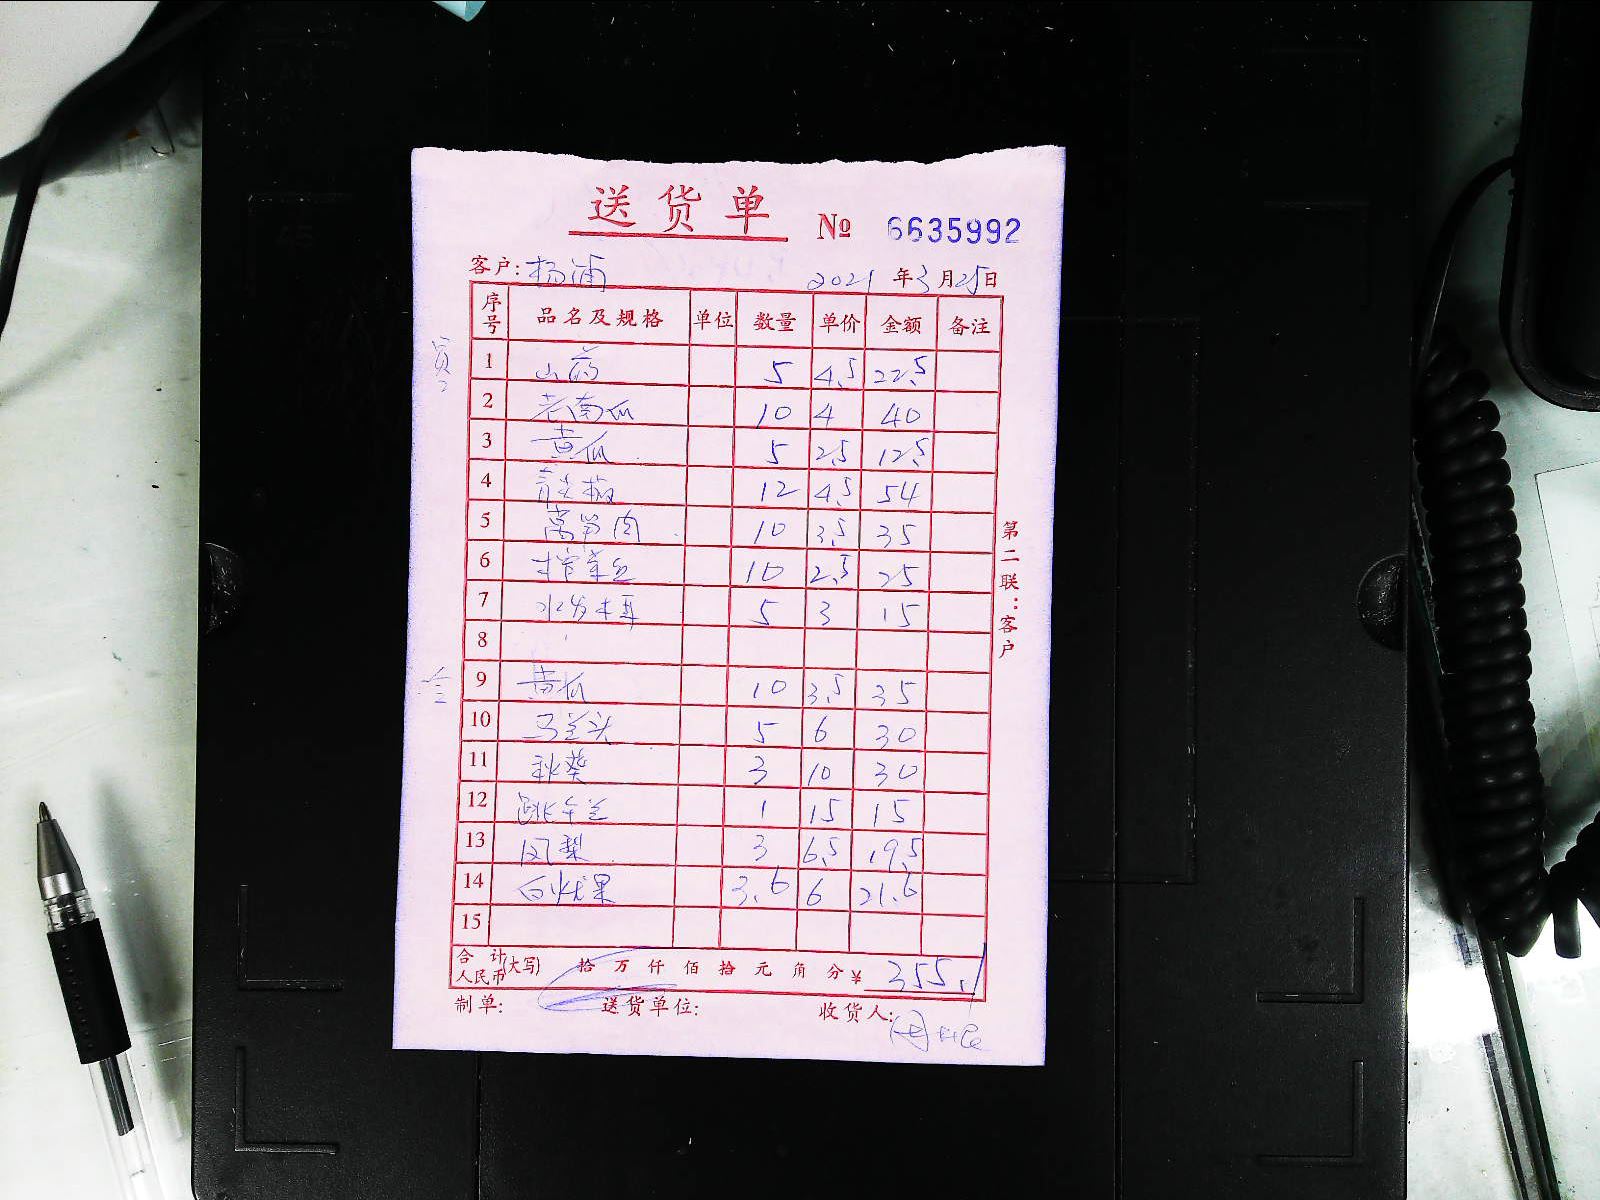 送货单 № 6635992
客户: 杨浦 2021 年 3 月 25 日
序号 品名及规格 单位 数量 单价 金额 备注
1 山药 5 4.5 22.5
2 老南瓜 10 4 40
3 黄瓜 5 2.5 12.5
4 12 4.5 54
5 莴笋肉 10 3.5 35
6 榨菜丝 10 2.5 25
7 水发木耳 5 3 15
8
9 黄瓜 10 3.5 35
10 马兰头 5 6 30
11 秋葵 3 10 30
12 1 15 15
13 凤梨 3 6.5 19.5
14 白火龙果 3.6 6 21.6
15
合计人民币(大写) 拾 万 仟 佰 拾 元 角 分 ¥ 355.1
制单: 送货单位: 收货人:
第二联:客户